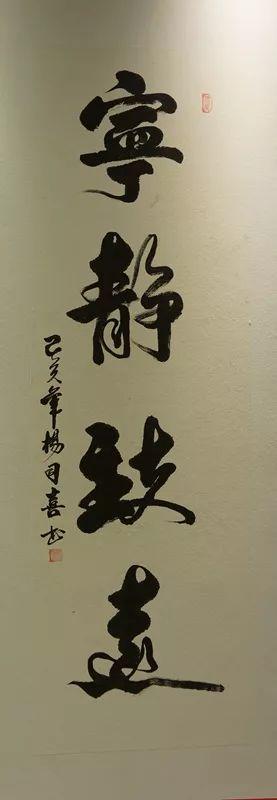 寧靜致遠
己亥年楊司喜书